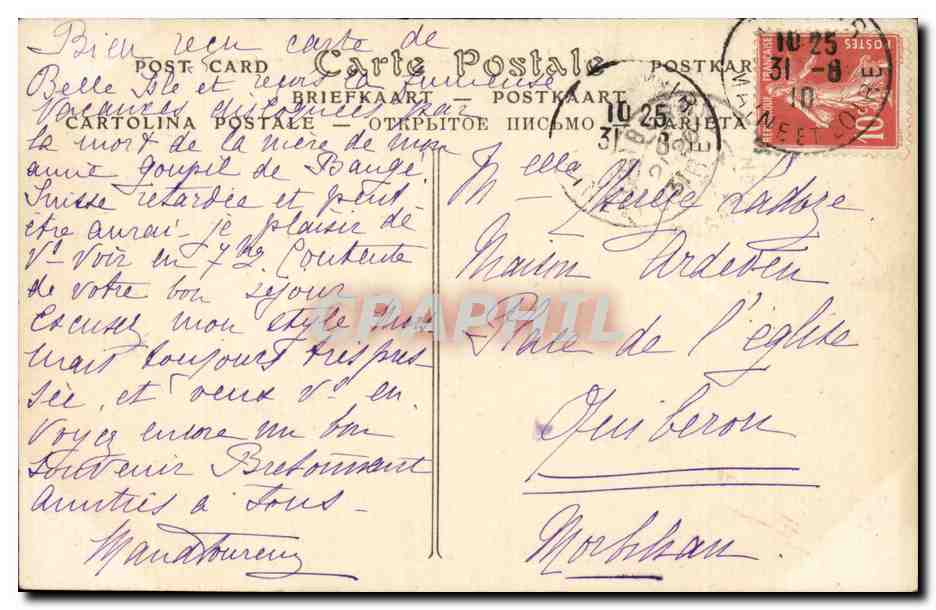 Bien reçu carte de
Belle Isle et
Vacances par
la mort de la mère de mon
amie Goupil de Baugé.
Suisse retardée et peut-
être aurai-je plaisir de
Vs voir en 7bre. Contente
de votre bon séjour
Excusez mon style
mais toujours très pres-
sée, et veux Vs en
voyez encore un bon
souvenir Bretonnant
amitiés à tous.
POST CARD
Carte Postale
POSTKAR
BRIEFKAART — POSTKAART
CARTOLINA POSTALE — ОТКРЫТОЕ ПИСЬМО — TARJETA
10 25
31 -8
10
MAINE ET LOIRE
10 25
31 -8
POSTES
10
Melle
Maison Ardeven
Place de l'église
Quiberon
Morbihan.
CPAPHIL